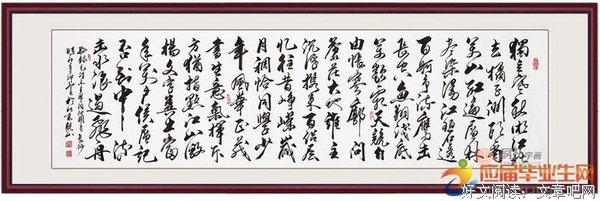 独立寒秋湘江北
去橘子洲头看
万山红遍层林
尽染漫江碧透
百舸争流鹰击
长空鱼翔浅底
万类霜天竞自
由怅寥廓问
苍茫大地谁主
沉浮携来百侣
忆往昔峥嵘岁
月稠恰同学少
年风华正茂
书生意气挥斥
方遒指点江山激
扬文字粪土当
年万户侯曾记
否到中流
击水浪遏飞舟
字画
应届毕业生网
好文阅读：文章吧网